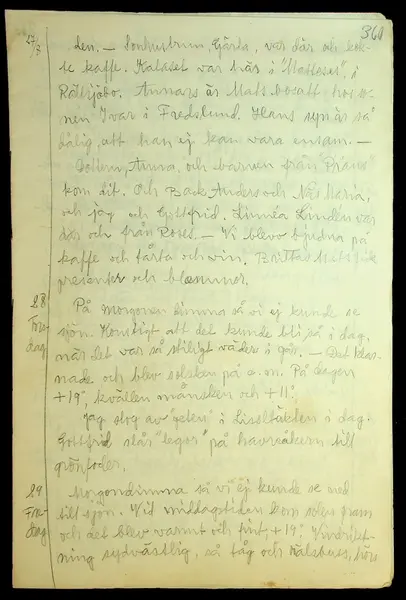 360
27/8
den. — Sonhustrun, Gärda, var där och kok-
te kaffe. Kalaset var här i "Mattesas" i
Rättsjöbo. Annars är Mats bosatt hos so-
nen Ivar i Fredslund. Hans syn är så
dålig, att han ej kan vara ensam. —
Dottern, Anna, och barnen från
kom dit. Och Back Anders och Maria,
och jag och Gottfrid. Linnéa Linden var
där och från Roses. — Vi blevo bjudna på
kaffe och tårta och vin. Brittas Mats fick
presenter och blommor.
28 På morgonen dimma så vi ej kunde se
Tors- sjön. Konstigt att det kunde bli på i dag,
dag når det var så stiligt väder i går. — Det klar-
nade och blev solsken på e.m. På dagen
+19°, kvällen månsken och +11°.
Jag slog av "geten" i Lisslbäkten i dag.
Gottfrid slår "legor" på havreåkern till
grönfoder.
29 Morgondimma så vi ej kunde se ned
Fre- till sjön. Vid middagstiden kom solen fram
dag och det blev varmt och fint, +19°. Vindrikt-
ning sydvästlig, så tåg och rälsbuss, hörs